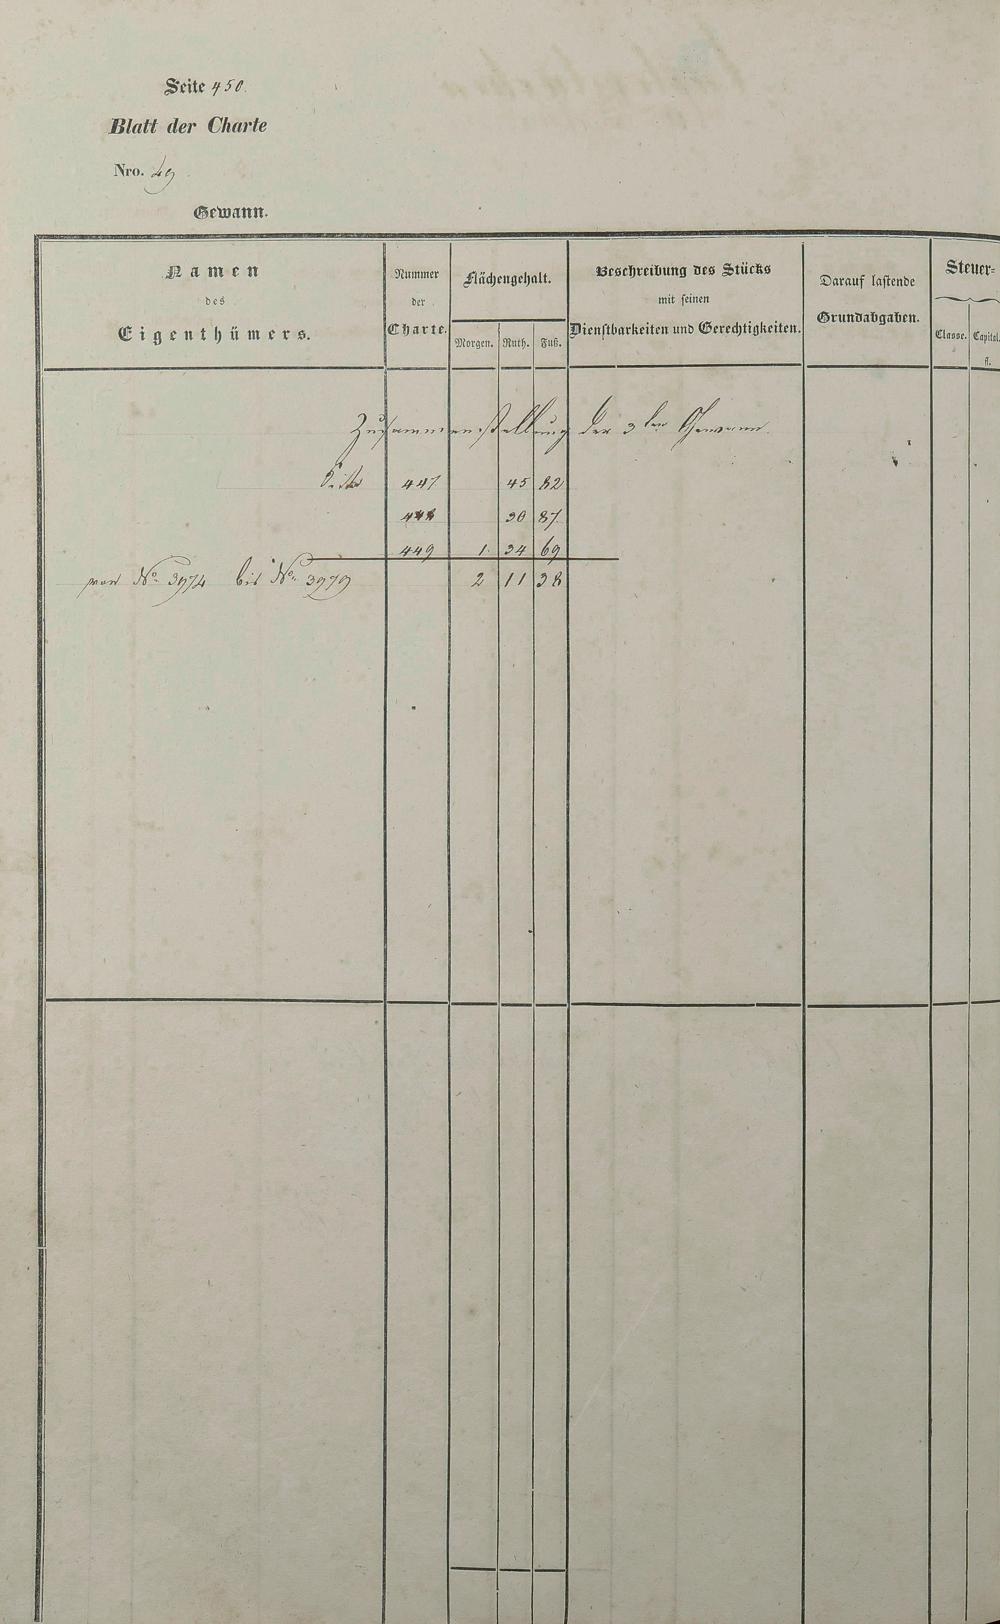 Seite 450.
Blatt der Charte
Nro. 49
Gewann.
Namen
des
Eigenthümers.
Nummer
der
Charte.
Flächengehalt.
Morgen. Ruth. Fuß.
Beschreibung des Stücks
mit seinen
Dienstbarkeiten und Gerechtigkeiten.
Darauf lastende
Grundabgaben.
Steuer=
Classe. Capital.
fl.
Zusammenstellung der 3ten Gewann.
Seite 447 45 82
448 30 87
449 1. 34 69
von No. 3974 bis No. 3979 2 11 38